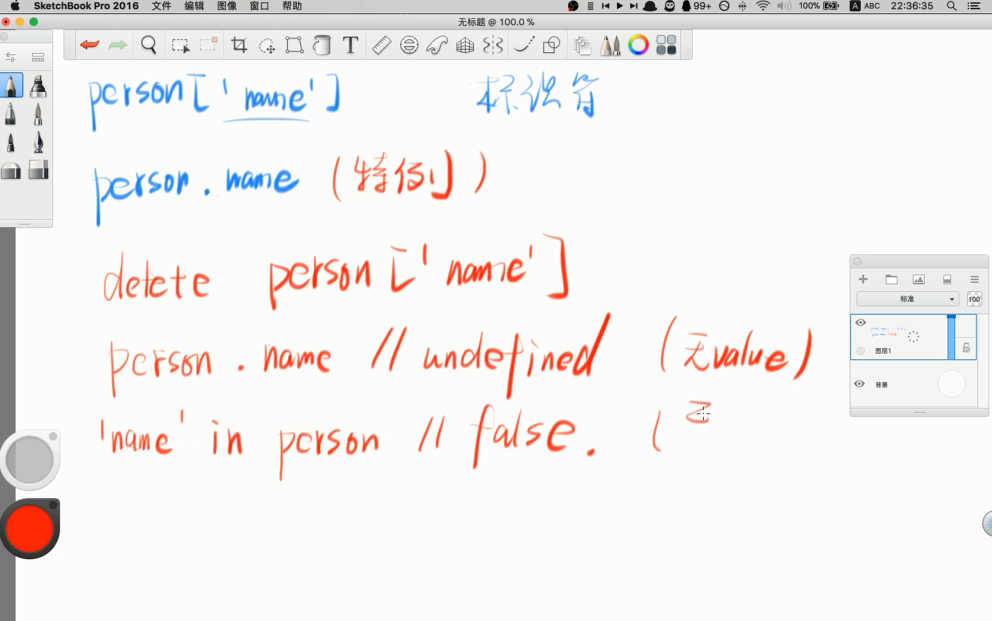 SketchBook Pro 2016 文件 编辑 图像 窗口 帮助 99+ 100% A ABC 22:36:35
无标题 @ 100.0 %
person['name'] 标识符
person.name (特例)
delete person['name']
标准 100
person.name // undefined (无value)
图层1
背景
'name' in person // false. (